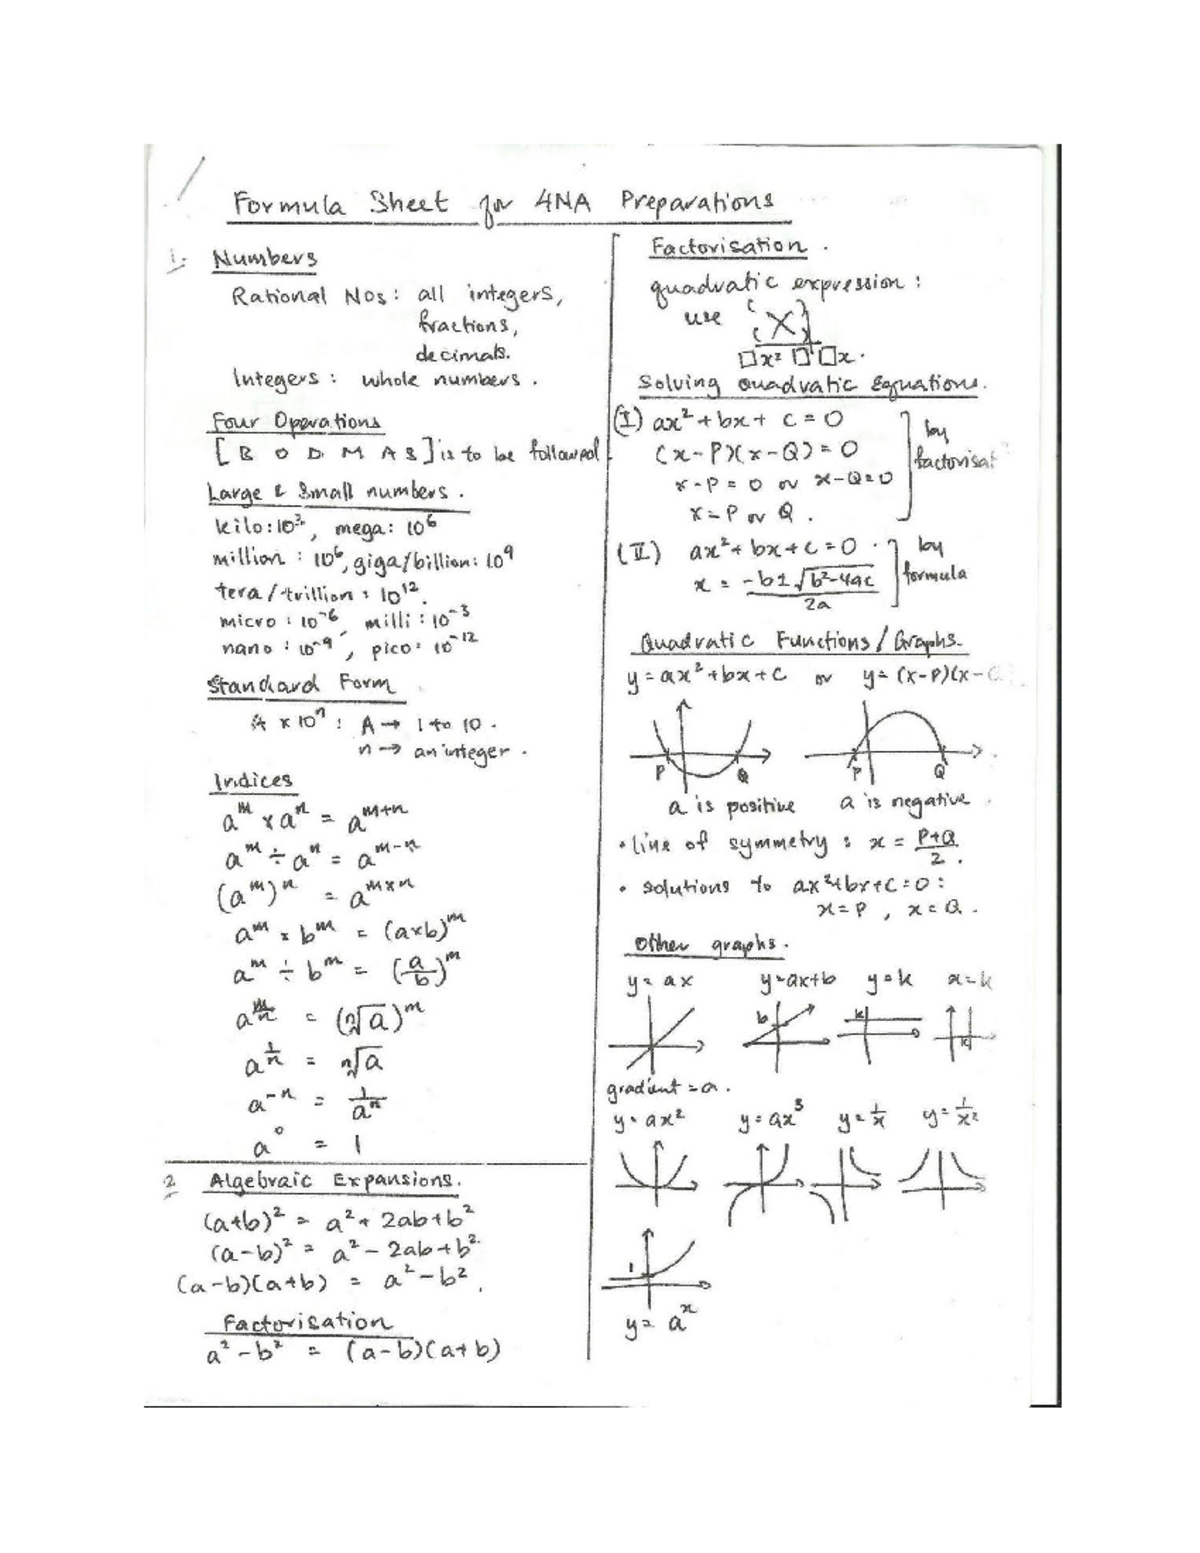 Formula Sheet for 4NA Preparations
1. Numbers
Rational Nos: all integers,
fractions,
decimals.
Integers : whole numbers .
Four Operations
[ B O D M A S ] is to be followed
Large & Small numbers .
kilo: 10³, mega: 10⁶
million : 10⁶, giga/billion: 10⁹
tera/trillion : 10¹².
micro : 10⁻⁶, milli : 10⁻³
nano : 10⁻⁹, pico: 10⁻¹²
Standard Form
A x 10ⁿ : A → 1 to 10 .
n → an integer .
Indices
a^m x a^n = a^(m+n)
a^m ÷ a^n = a^(m-n)
(a^m)^n = a^(m×n)
a^m × b^m = (a×b)^m
a^m ÷ b^m = (a/b)^m
a^(m/n) = (ⁿ√a)^m
a^(1/n) = ⁿ√a
a^-n = 1/a^n
a⁰ = 1
2 Algebraic Expansions.
(a+b)² = a² + 2ab + b²
(a-b)² = a² - 2ab + b²
(a-b)(a+b) = a² - b².
Factorisation
a² - b² = (a-b)(a+b)
Factorisation .
quadratic expression :
use ( X )
□x² □ □x .
Solving Quadratic Equations.
(I) ax² + bx + c = 0
(x-P)(x-Q) = 0
x-P = 0 or x-Q = 0
x = P or Q .
by
factorisat
(II) ax² + bx + c = 0 .
x = -b ± √b²-4ac
2a
by
formula
Quadratic Functions / Graphs.
y = ax² + bx + c or y = (x-P)(x-
P Q P Q
a is positive a is negative .
• line of symmetry : x = P+Q
2 .
• solutions to ax²+bx+c=0 :
x = P , x = Q .
Other graphs .
y = ax y=ax+b y=k x=k
b k k
gradient = a .
y = ax² y = ax³ y = 1/x y = 1/x²
1
y = a^x